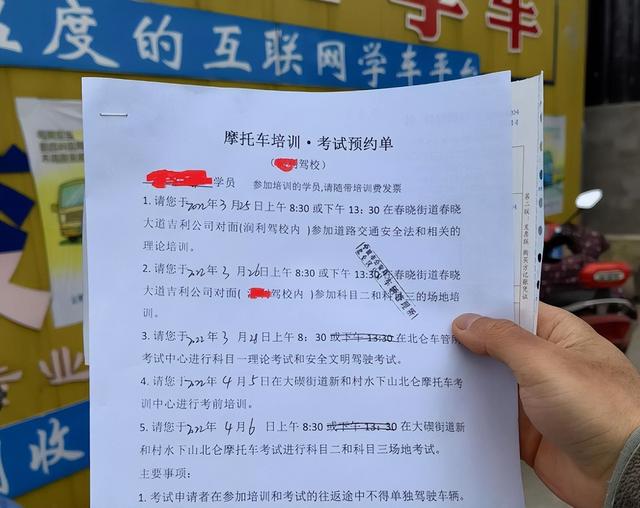 学车
度的互联网学车平台
摩托车培训·考试预约单
驾校）
学员 参加培训的学员,请随带培训费发票
1. 请您于2022年3月25日上午 8:30 或下午 13：30 在春晓街道春晓
大道吉利公司对面(润利驾校内 )参加道路交通安全法和相关的
理论培训。
2. 请您于2022年3月26日上午 8:30 或下午 13:30 在春晓街道春晓
大道吉利公司对面( 利驾校内 ）参加科目二和科目三的场地培
训。
3. 请您于2022年3月28日上午 8：30 或下午 13:30 在北仑车管所
考试中心进行科目一理论考试和安全文明驾驶考试。
4. 请您于2022年4月5日在大碶街道新和村水下山北仑摩托车考
训中心进行考前培训。
5. 请您于2022年4月6日上午 8:30 或下午 13：30 在大碶街道新
和村水下山北仑摩托车考试进行科目二和科目三场地考试。
主要事项：
1. 考试申请者在参加培训和考试的往返途中不得单独驾驶车辆。
第二联：发票联 购买方记账凭证
业
收